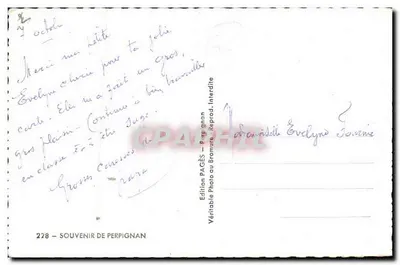 7 octobre
Merci ma petite
Evelyne chérie pour ta jolie
carte. Elle m'a fait un gros,
gros plaisir. Continue à bien travailler
en classe et à être sage.
Grosses caresses
Mademoiselle Evelyne
Edition PAGÈS - Perpignan
Véritable Photo au Bromure - Reprod. Interdite
228 - SOUVENIR DE PERPIGNAN
Cartorum